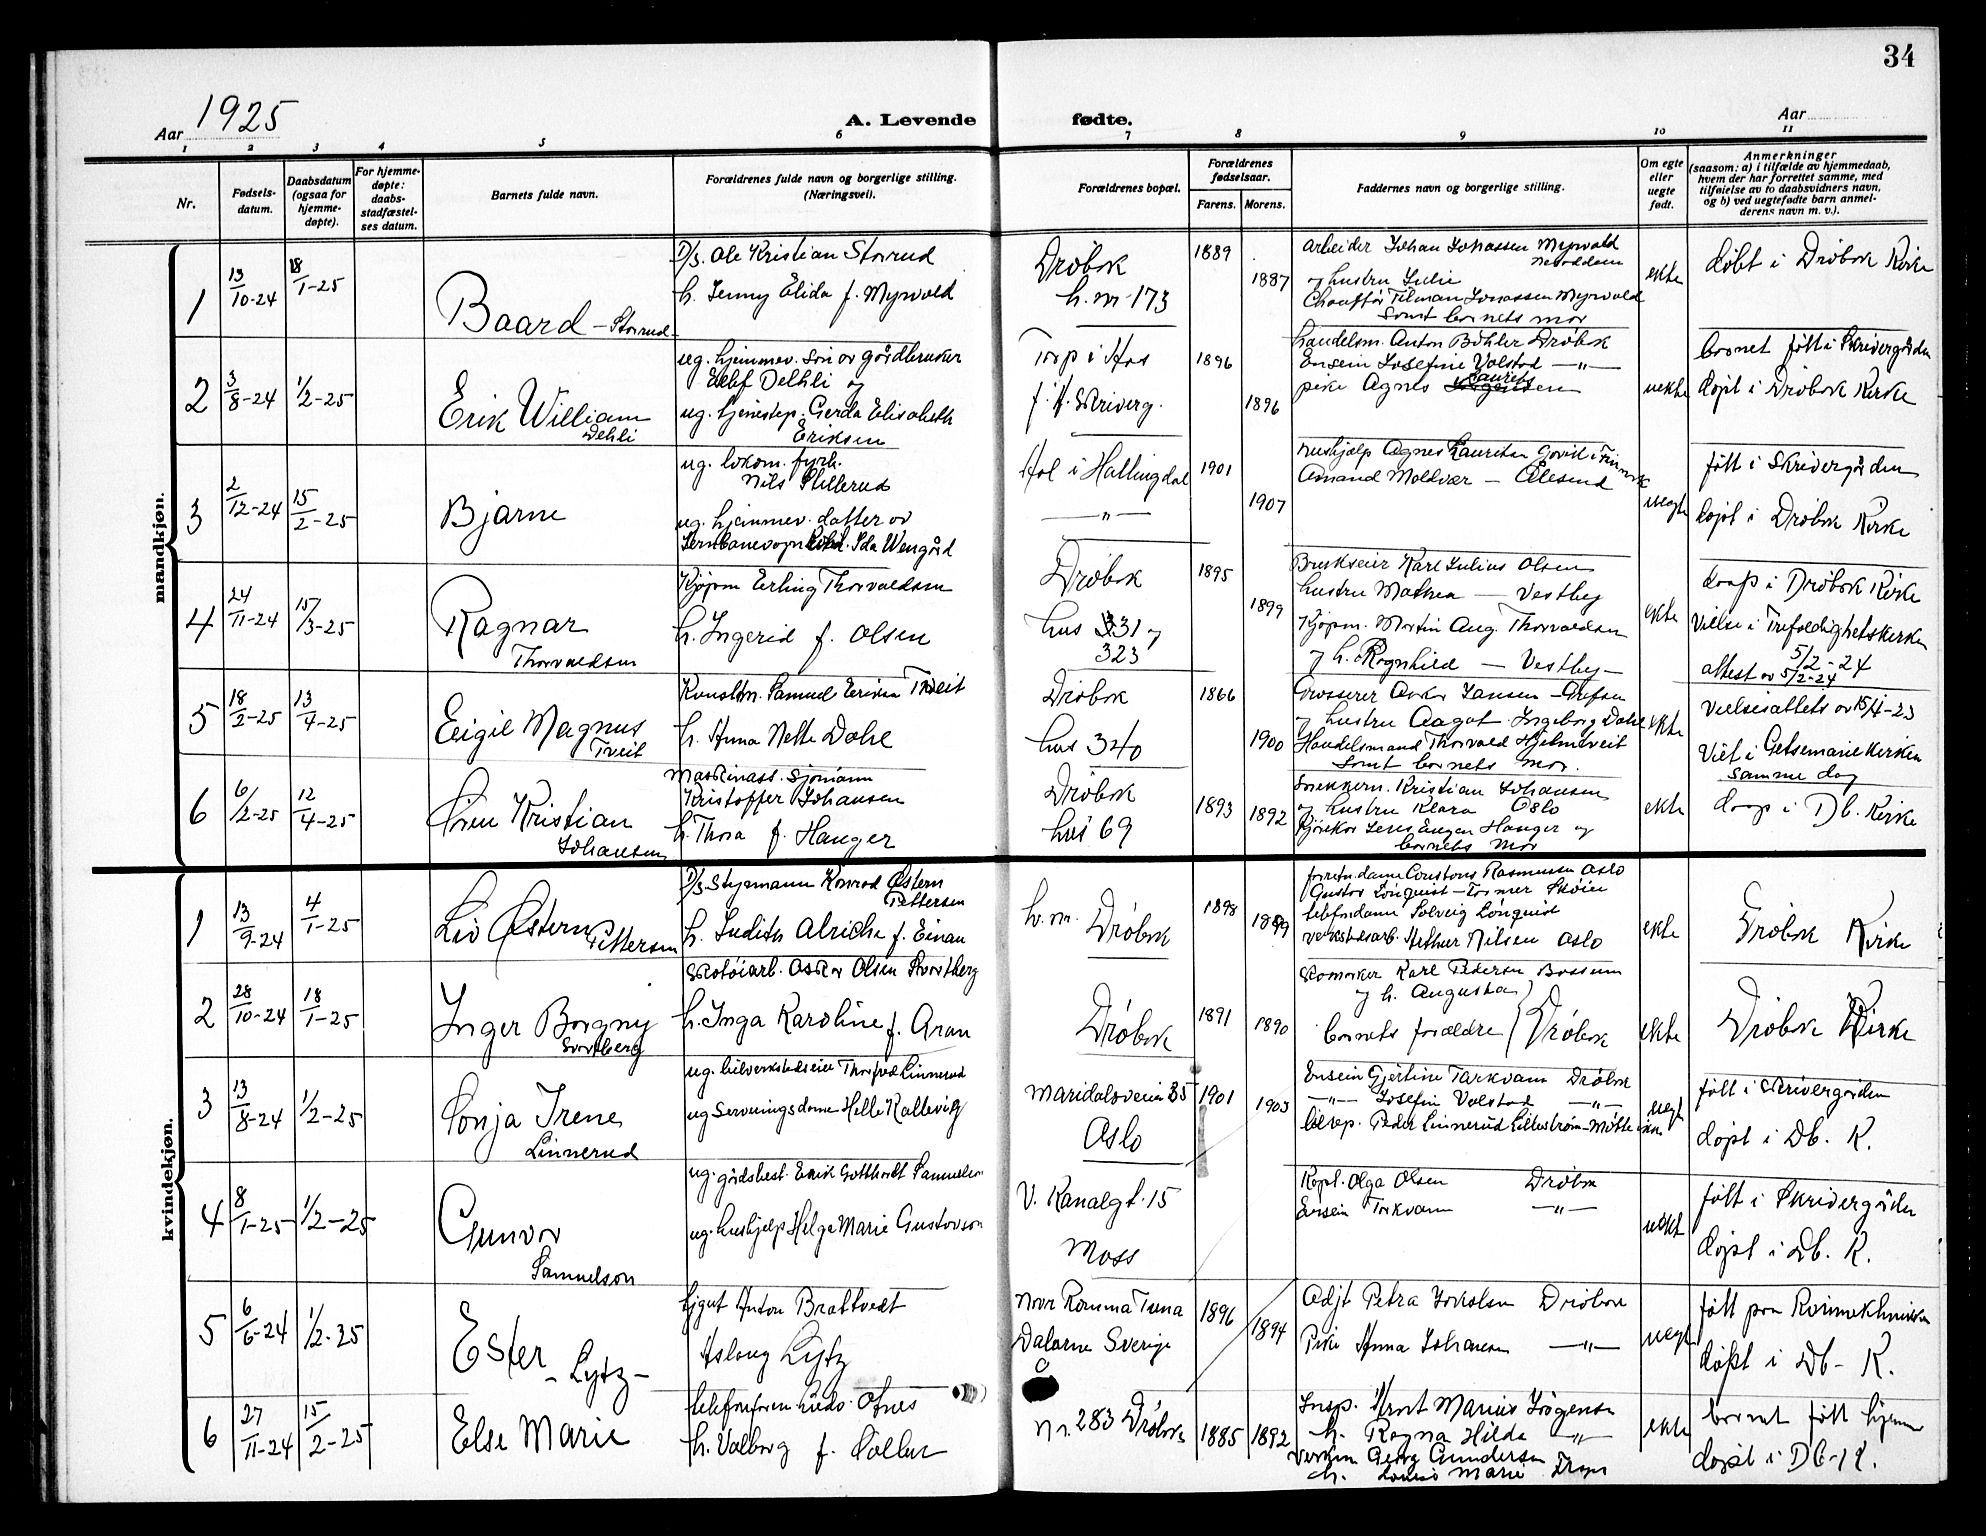 34
Aar 1925
A. Levende fødte.
Aar
1 2 3 4 5 6 7 8 9 10 11
Nr.
Fødsels-
datum.
Daabsdatum
(ogsaa for
hjemme-
døpte).
For hjemme-
døpte:
daabs-
stadfæstel-
ses datum.
Barnets fulde navn.
Forældrenes fulde navn og borgerlige stilling.
(Næringsvei).
Forældrenes bopæl.
Forældrenes
fødselsaar.
Farens. Morens.
Faddernes navn og borgerlige stilling.
Om egte
eller
uegte
født.
Anmerkninger
(saasom: a) i tilfælde av hjemmedaab,
hvem der har forrettet samme, med
tilføielse av to daabsvidners navn,
og b) ved uegtefødte barn anmel-
derens navn m. v.).
mandkjøn.
1
13/10-24
18/1-25
Baard - Storrud -
Ole Kristian Storrud
h. Jenny Elida f. Myrvold
Drøbak
h. nr 173
1889
1887
Arbeider Johan Johassen Myrvold
Nesodden
og hustru Julie
Chauffør Tilman Jonassen Myrvold
Samt barnets mor
ekte
døbt i Drøbak Kirke
2
3/8-24
1/2-25
Erik William
Dehli
ug. hjemmev. søn av gårdbruker
Dehli og
ug. tjenestep. Gerda Elisabeth
Eriksen
Torp i Aas
f. A. Skriverg.
1896
1896
Handelsm. Anton Bøhler Drøbak
Josefine Volstad -"-
pike Agnes Lauretsen
uekte
barnet født i Skrivergården
døpt i Drøbak Kirke
3
2/12-24
15/2-25
Bjarne
ug. lokom. fyrb.
Nils Stillerud
ug. hjemmev. datter av
Ida Wengård
Hol i Hallingdal
-"-
1901
1907
Hushjælp Agnes
Amand Moldvær - Ålesund
uegte
født i Skrivergården
døpt i Drøbak Kirke
4
24/11-24
15/3-25
Ragnar
Thorvaldsen
Kjøpm Erling Thorvaldsen
h. Ingerid f. Olsen
Drøbak
hus 331 og
323
1895
1899
Brukseier Karl Julius Olsen
hustru Mathea - Vestby
Kjøpm. Martin Aug. Thorvaldsen
og h. Ragnhild - Vestby -
ekte
daap i Drøbak Kirke
Vielse i Trefoldighetskirken
5/2-24
attest av 5/2-24
5
18/2-25
13/4-25
Eigil Magnus
Tveit
Samuel Tveit
h. Anna Nette Dahl
Drøbak
hus 340
1866
1900
Grosserer Jansen - Grefsen
og hustru Aagot. Ingeborg Dahl
Handelsmand Thorvald Hjelmeveit
Samt barnets mor.
ekte
Vielsesattets av 15/4-23
Viet i Getsemanekirken
samme dag
6
6/2-25
12/4-25
Søren Kristian
Johansen
Maskinass. Sjømann
Kristoffer Johansen
h. Thora f. Hanger
Drøbak
hus 69
1893
1892
Snekkerm. Kristian Johansen
og hustru Klara Oslo
Jens Eugen Hanger og
barnets mor
ekte
daap i Db. Kirke
kvindekjøn.
1
13/9-24
4/1-25
Liv Østern Pettersen
Styrmann Konrad Østern
Pettersen
h. Judith Alriche f. Einan
h. nr. Drøbak
1898
1899
Rasmussen Oslo
Solveig Lönquist
verkstedsarb. Arthur Nilsen Oslo
ekte
Drøbak Kirke
2
28/10-24
18/1-25
Inger Borgny
Svartberg
Skotøiarb. Oskar Olsen Svartberg
h. Inga Karoline f. Aran
Drøbak
1891
1890
Skomaker Karl Pedersen Bossum
og h. Augusta
barnets forældre } Drøbak
ekte
Drøbak Kirke
3
13/8-24
1/2-25
Sonja Irene
Linnerud
ug. bilverkstedseier Linnerud
ug Serveringsdame Helle Kallevig
Maridalsveien 35
Oslo
1901
1903
Gjertine Torkvam Drøbak
-"- Josefin Volstad -"-
Peder Linnerud
uegt
født i Skrivergården
døpt i Db. K.
4
8/1-25
1/2-25
Gunvor
Samuelson
ug. gårdsbest. Erik Gotthardt Samuelson
ug. hushjelp Helga Marie Gustavson
V. Kanalgt. 15
Moss
Olga Olsen Drøbak
Torkvam -"-
uekt
født i Skrivergården
døpt i Db. K.
5
6/6-24
1/2-25
Ester - Lytz -
Anton Brattvedt
Aslaug Lytz
Dalarne Sverige
1896
1894
Adjt Petra Drøbak
Pike Anna Johansen -"-
uegte
døpt i Db- K.
6
27/11-24
15/2-25
Else Marie
h. Valborg f.
Nr. 283 Drøbak
1885
1892
Insp. Arnt Marius Jörgensen
h. Ragna Hilda -"-
Georg Gundersen
h. Marie
ekte
barnet født hjemme
døpt i Db-K.